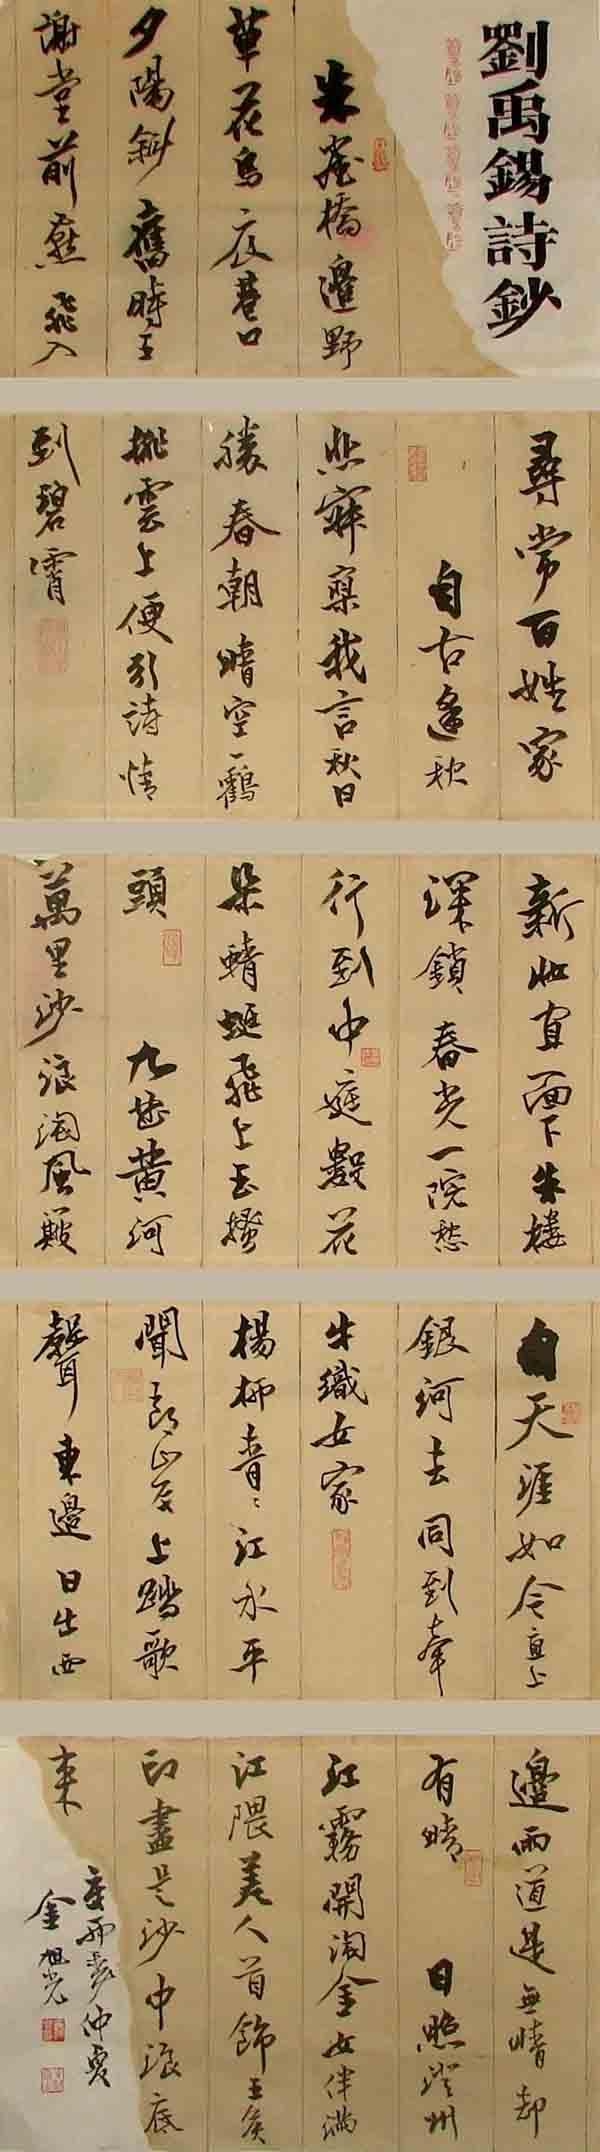 劉禹錫詩鈔
朱雀橋邊野
草花烏衣巷口
夕陽斜舊時王
謝堂前燕飛入
尋常百姓家
自古逢秋
悲寂寥我言秋日
勝春朝晴空一鶴
排雲上便引詩情
到碧霄
新妝宜面下朱樓
深鎖春光一院愁
行到中庭數花
朵蜻蜓飛上玉搔
頭 九曲黃河
萬里沙浪淘風簸
自天涯如今直上
銀河去同到牽
牛織女家
楊柳青々江水平
聞郎岸上踏歌
聲東邊日出西
邊雨道是無晴却
有晴 日照澄州
江霧開淘金女伴滿
江隈美人首飾王侯
印盡是沙中浪底
來
歲仲夏
金旭光